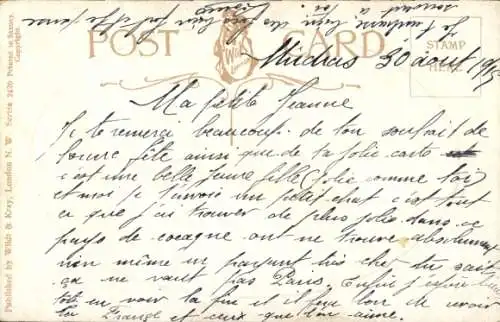 POST CARD
STAMP
HERE
Madras 30 août 191
Ma petite Jeanne
Je te remercie beaucoup de ton souhait de
bonne fête ainsi que de ta jolie carte
c'est une belle jeune fille (jolie comme toi)
et moi je t'envoie un petit chat c'est tout
ce que j'ai trouver de plus jolie dans ce
pays de cocagne ont ne trouve absolument
rien même en payant très cher tu sais
ça ne vaut pas Paris. Enfin j'espère
en voir la fin et il fera bon de revoir
la France et ceux que l'on aime.
Published by Wildt & Kray, London N.W. Series 2470 Printed in Saxony.
Copyright.